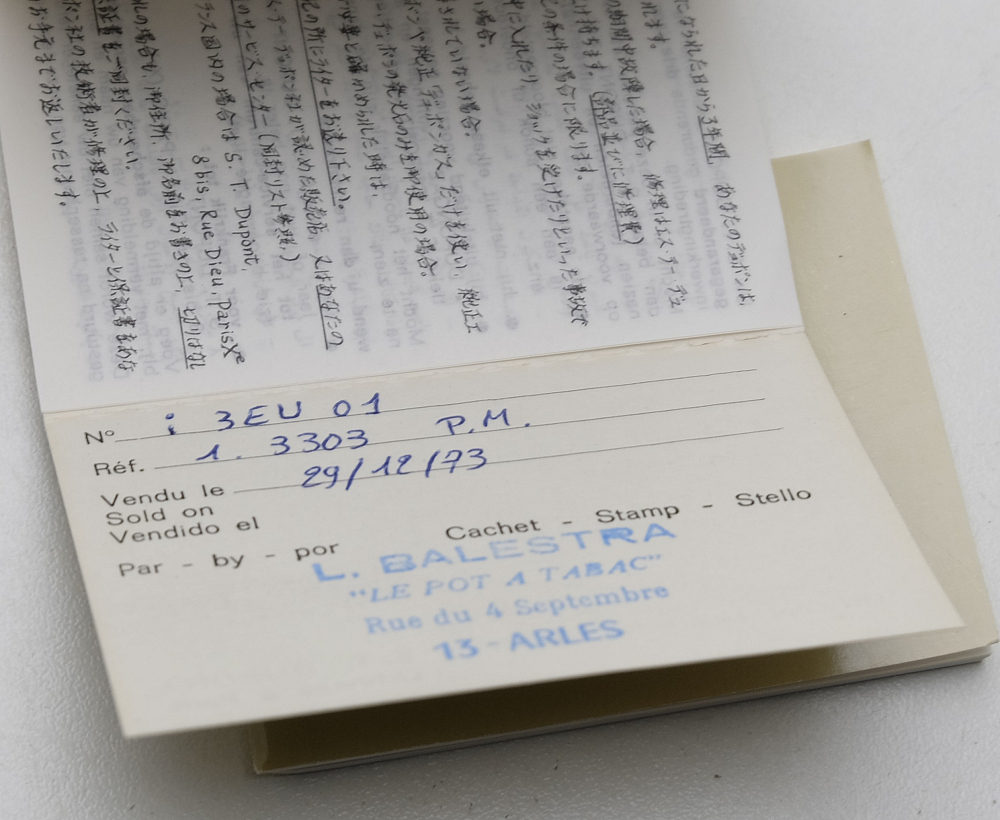 になられた日から3年間、あなたのデュポンは、
れます。
の期間中故障した場合、修理はエス・テー・デュ
け持ちます。(部品並びに修理費)
の条件の場合に限ります。
中に入れたり、ショックを受けたりといった事故で
い場合。
されていない場合。
ポンや純正デュポンガス〟だけを使い、純正エ
・デュポンの発火石のみを御使用の場合。
必要と認められた時は、
の所にライターをお送り下さい。
ス・テー・デュポン社が認めた販売店、又はあなたの
のサービスセンター(同封リスト参照)
ランス国内の場合は S. T. Dupont,
8 bis, Rue Dieu, Paris Xe
れの場合も、御住所、御名前をお書きの上、切りはなし
証書を同封ください。
ポン社の技術者が修理の上、ライターと保証書をあな
お手元までお返しいたします。
N° : 3EU 01
Réf. 1. 3303 P.M.
Vendu le 29/12/73
Sold on
Vendido el
Cachet - Stamp - Stello
Par - by - por
L. BALESTRA
"LE POT A TABAC"
Rue du 4 Septembre
13 - ARLES